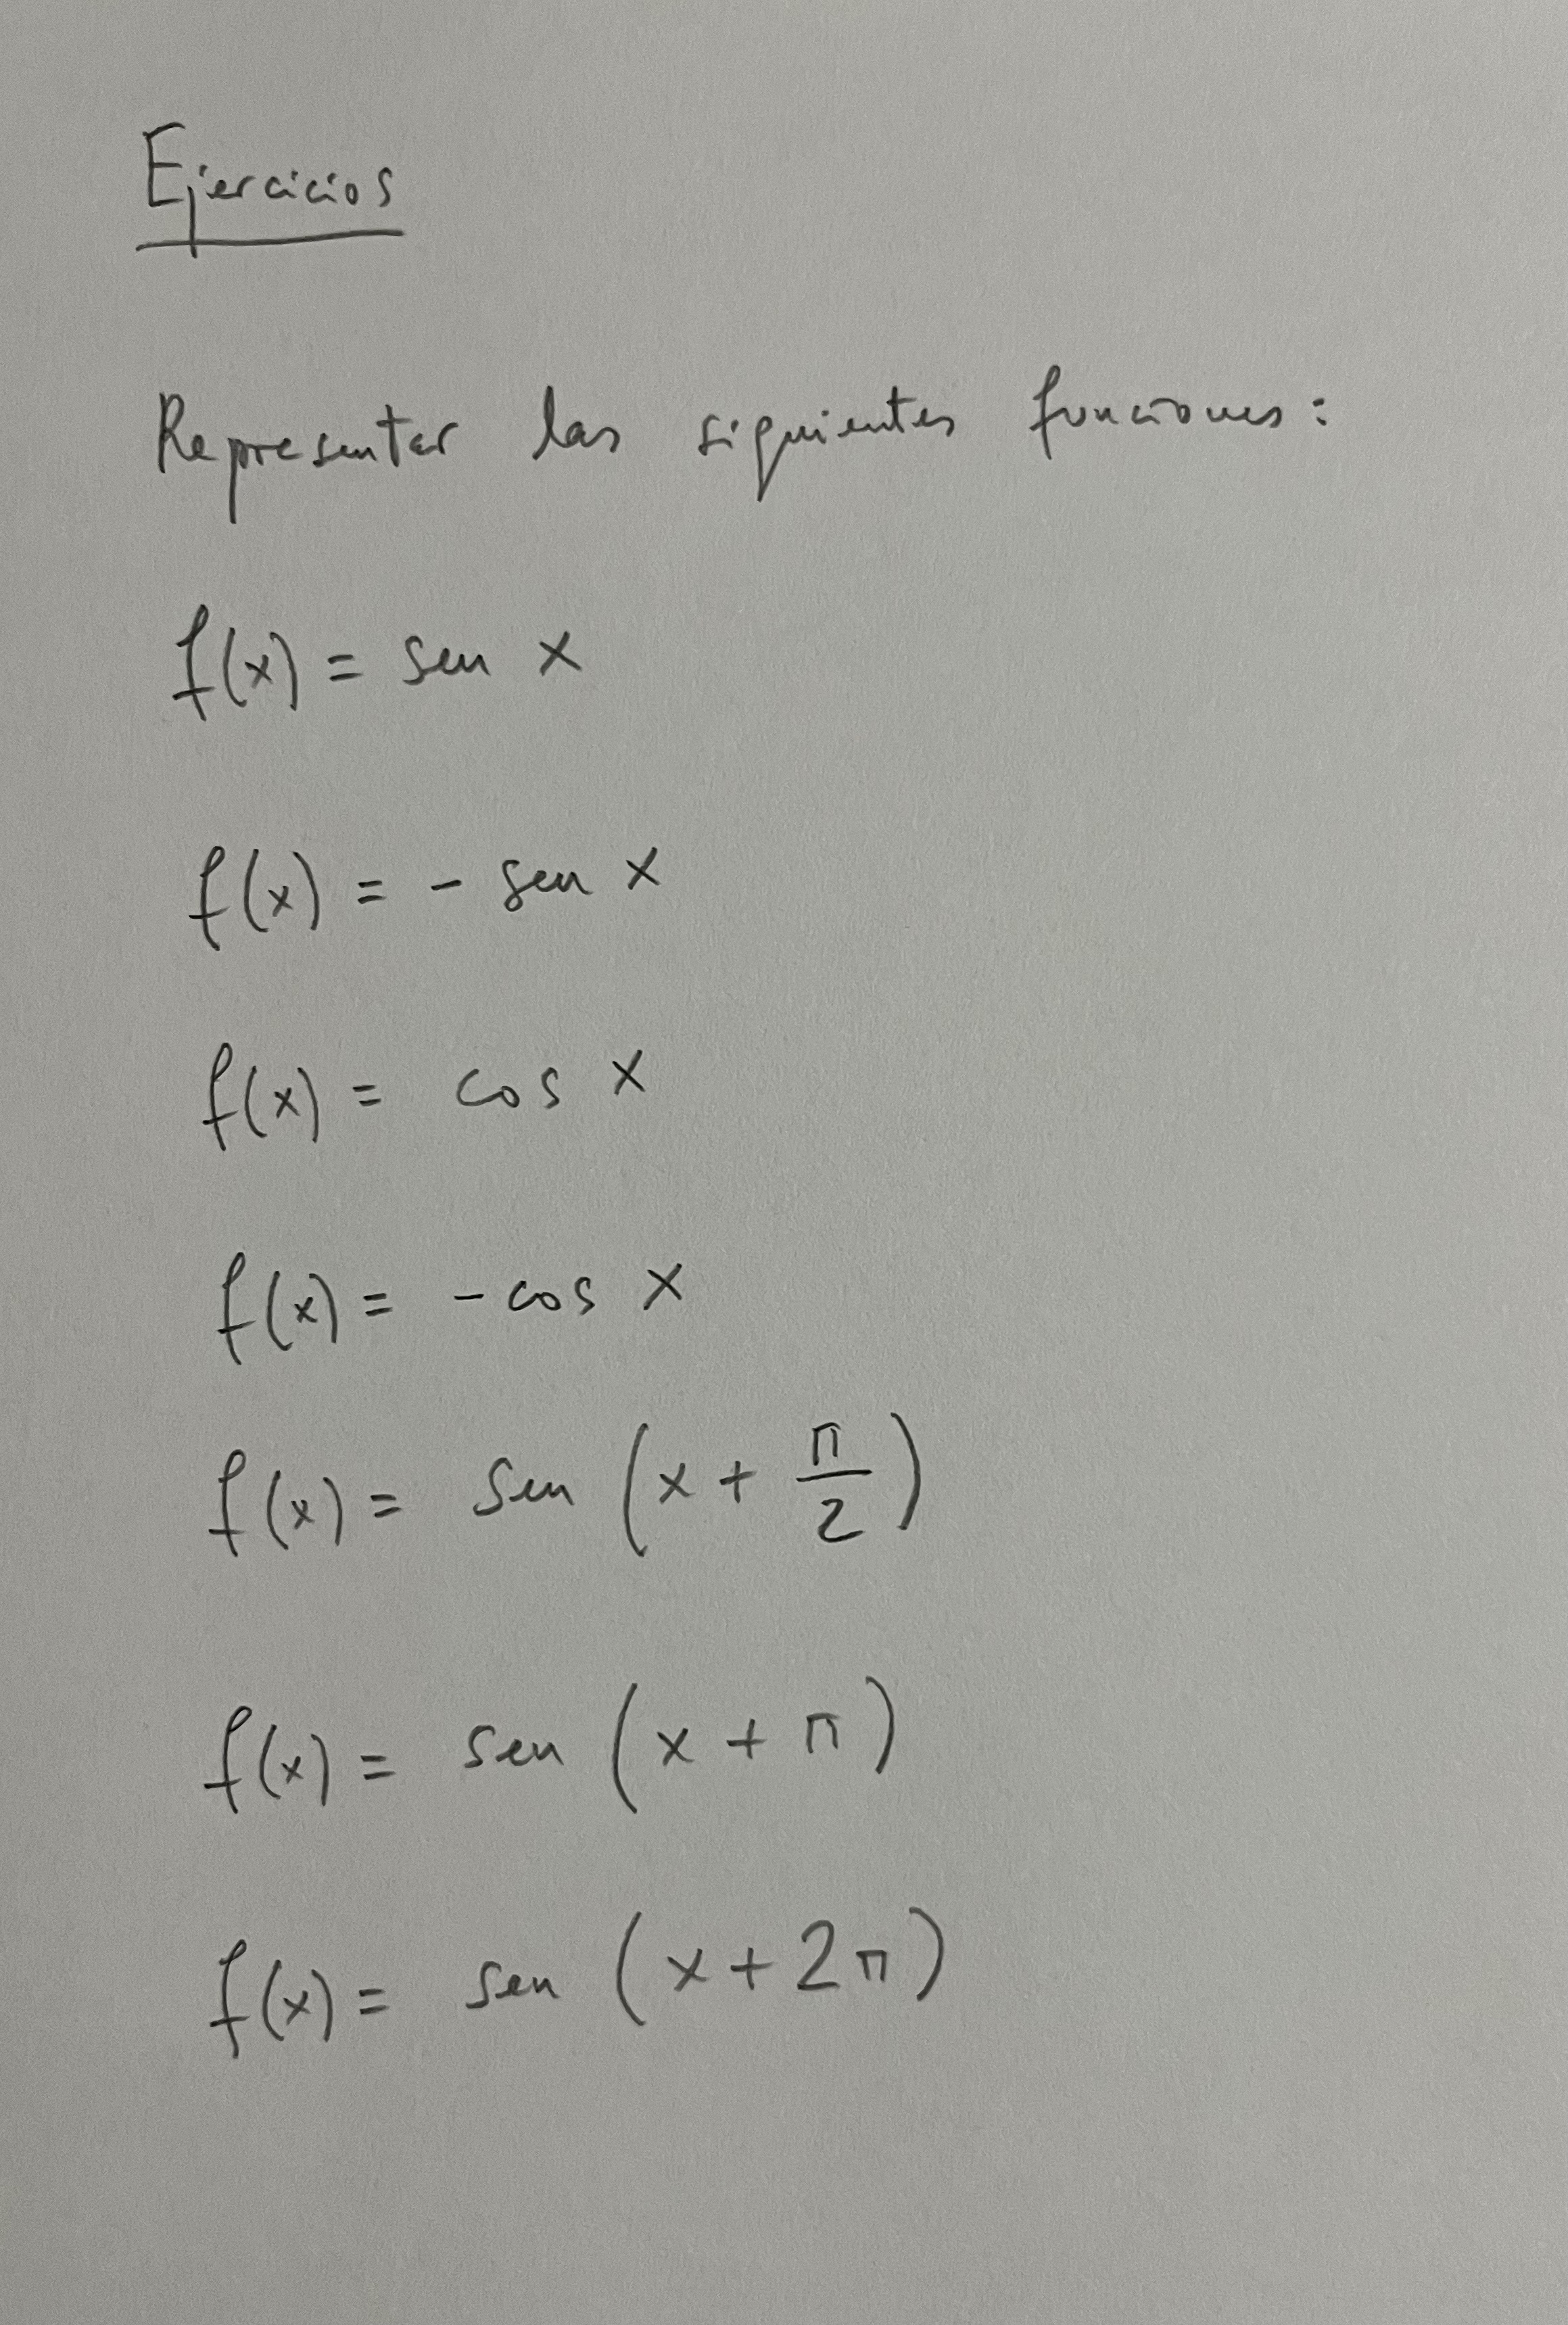 Ejercicios
Representar las siguientes funciones:
f(x) = sen x
f(x) = - sen x
f(x) = cos x
f(x) = - cos x
f(x) = sen (x + π/2)
f(x) = sen (x + π)
f(x) = sen (x + 2π)